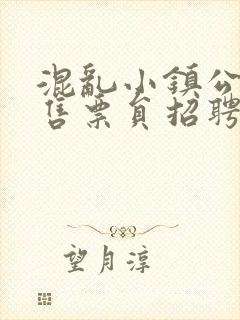 混亂小鎮公
售票員招聘
望月淳